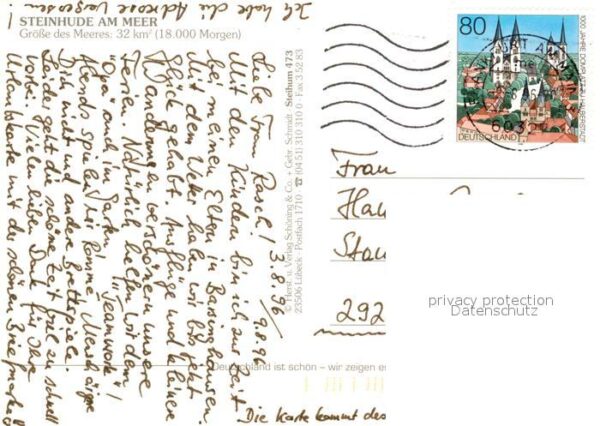 Ich habe die Adresse vergessen!
STEINHUDE AM MEER
Größe des Meeres: 32 km² (18.000 Morgen)
3.8.96
Liebe Frau Rasch! 9.8.96
Mit den Kindern bin ich zur Zeit
bei meinen Eltern in Barsinghausen.
Mit dem Wetter haben wir bis jetzt
Glück gehabt. Ausflüge und kleine
Wanderungen verschönern unsere
Ferien. Natürlich helfen wir dem
Opa auch im Garten. "Teamwork"!
Abends spielen wir Römmé, Mensch ärgere
Dich nicht und andere Brettspiele.
Leider geht die schöne Zeit viel zu schnell
vorbei. Vielen lieben Dank für Ihre
Urlaubskarte mit der schönen Briefmarke!
Die Karte kommt des
© Herst. u. Verlag Schöning & Co. + Gebr. Schmidt Steihum 473
23506 Lübeck · Postfach 1710 · ☎ (04 51) 310 310 · Fax 3 52 83
80
DEUTSCHLAND
1000 JAHRE DOMPLATZ ZU HALBERSTADT
Frau
Han
Stau
292
Deutschland ist schön – wir zeigen es
privacy protection
Datenschutz